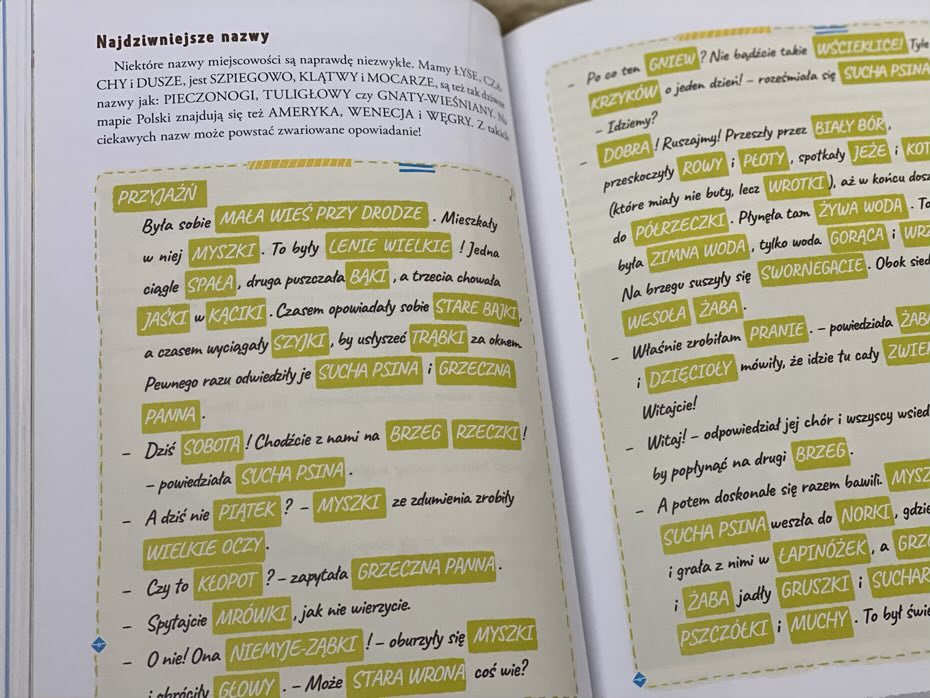 Najdziwniejsze nazwy
Niektóre nazwy miejscowości są naprawdę niezwykłe. Mamy ŁYSE, CZA-
CHY i DUSZE, jest SZPIEGOWO, KLĄTWY i MOCARZE, są też tak dziwne
nazwy jak: PIECZONOGI, TULIGŁOWY czy GNATY-WIEŚNIANY. Na
mapie Polski znajdują się też AMERYKA, WENECJA i WĘGRY. Z takich
ciekawych nazw może powstać zwariowane opowiadanie!
PRZYJAŹŃ
Była sobie MAŁA WIEŚ PRZY DRODZE. Mieszkały
w niej MYSZKI. To były LENIE WIELKIE! Jedna
ciągle SPAŁA, druga puszczała BĄKI, a trzecia chowała
JAŚKI w KĄCIKI. Czasem opowiadały sobie STARE BAJKI,
a czasem wyciągały SZYJKI, by usłyszeć TRĄBKI za oknem
Pewnego razu odwiedziły je SUCHA PSINA i GRZECZNA
PANNA.
– Dziś SOBOTA! Chodźcie z nami na BRZEG RZECZKI!
– powiedziała SUCHA PSINA.
– A dziś nie PIĄTEK? – MYSZKI ze zdumienia zrobiły
WIELKIE OCZY.
– Czy to KŁOPOT? – zapytała GRZECZNA PANNA.
– Spytajcie MRÓWKI, jak nie wierzycie.
– O nie! Ona NIEMYJE-ZĄBKI! – oburzyły się MYSZKI
i obróciły GŁOWY. – Może STARA WRONA coś wie?
– Po co ten GNIEW? Nie bądźcie takie WŚCIEKLICE! Tyle
KRZYKÓW o jeden dzień! – roześmiała się SUCHA PSINA
– Idziemy?
– DOBRA! Ruszajmy! Przeszły przez BIAŁY BÓR,
przeskoczyły ROWY i PŁOTY, spotkały JEŻE i
(które miały nie buty, lecz WROTKI), aż w końcu
do PÓŁRZECZKI. Płynęła tam ŻYWA WODA. To
była ZIMNA WODA, tylko woda GORĄCA i
Na brzegu suszyły się SWORNEGACIE. Obok
WESOŁA ŻABA.
– Właśnie zrobiłam PRANIE. – powiedziała ŻABA
i DZIĘCIOŁY mówiły, że idzie tu cały
Witajcie!
– Witaj! – odpowiedział jej chór i wszyscy
by popłynąć na drugi BRZEG.
– A potem doskonale się razem bawili.
SUCHA PSINA weszła do NORKI,
i grała z nimi w ŁAPINÓŻEK, a
i ŻABA jadły GRUSZKI i
PSZCZÓŁKI i MUCHY. To był